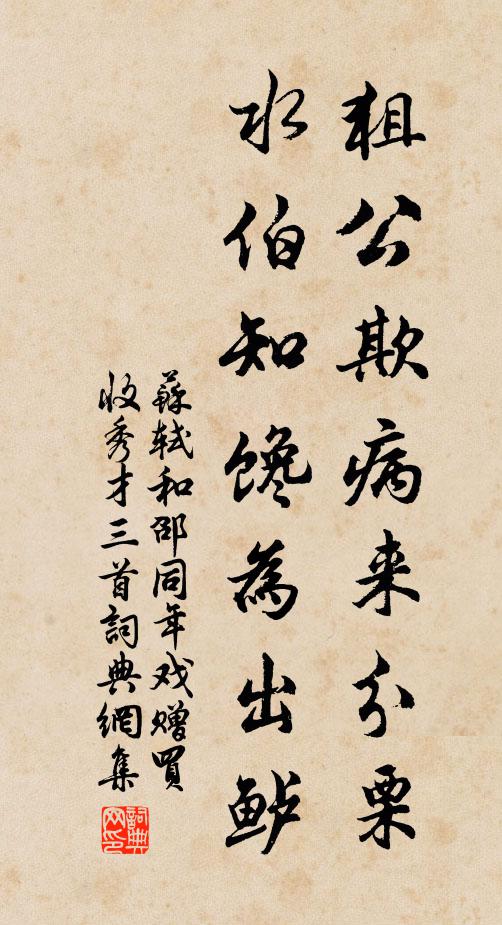 狙公欺病来分栗
水伯知馋為出鲈
蘇軾和邵同年戏赠買
收秀才三首詞典網集
詞典网印